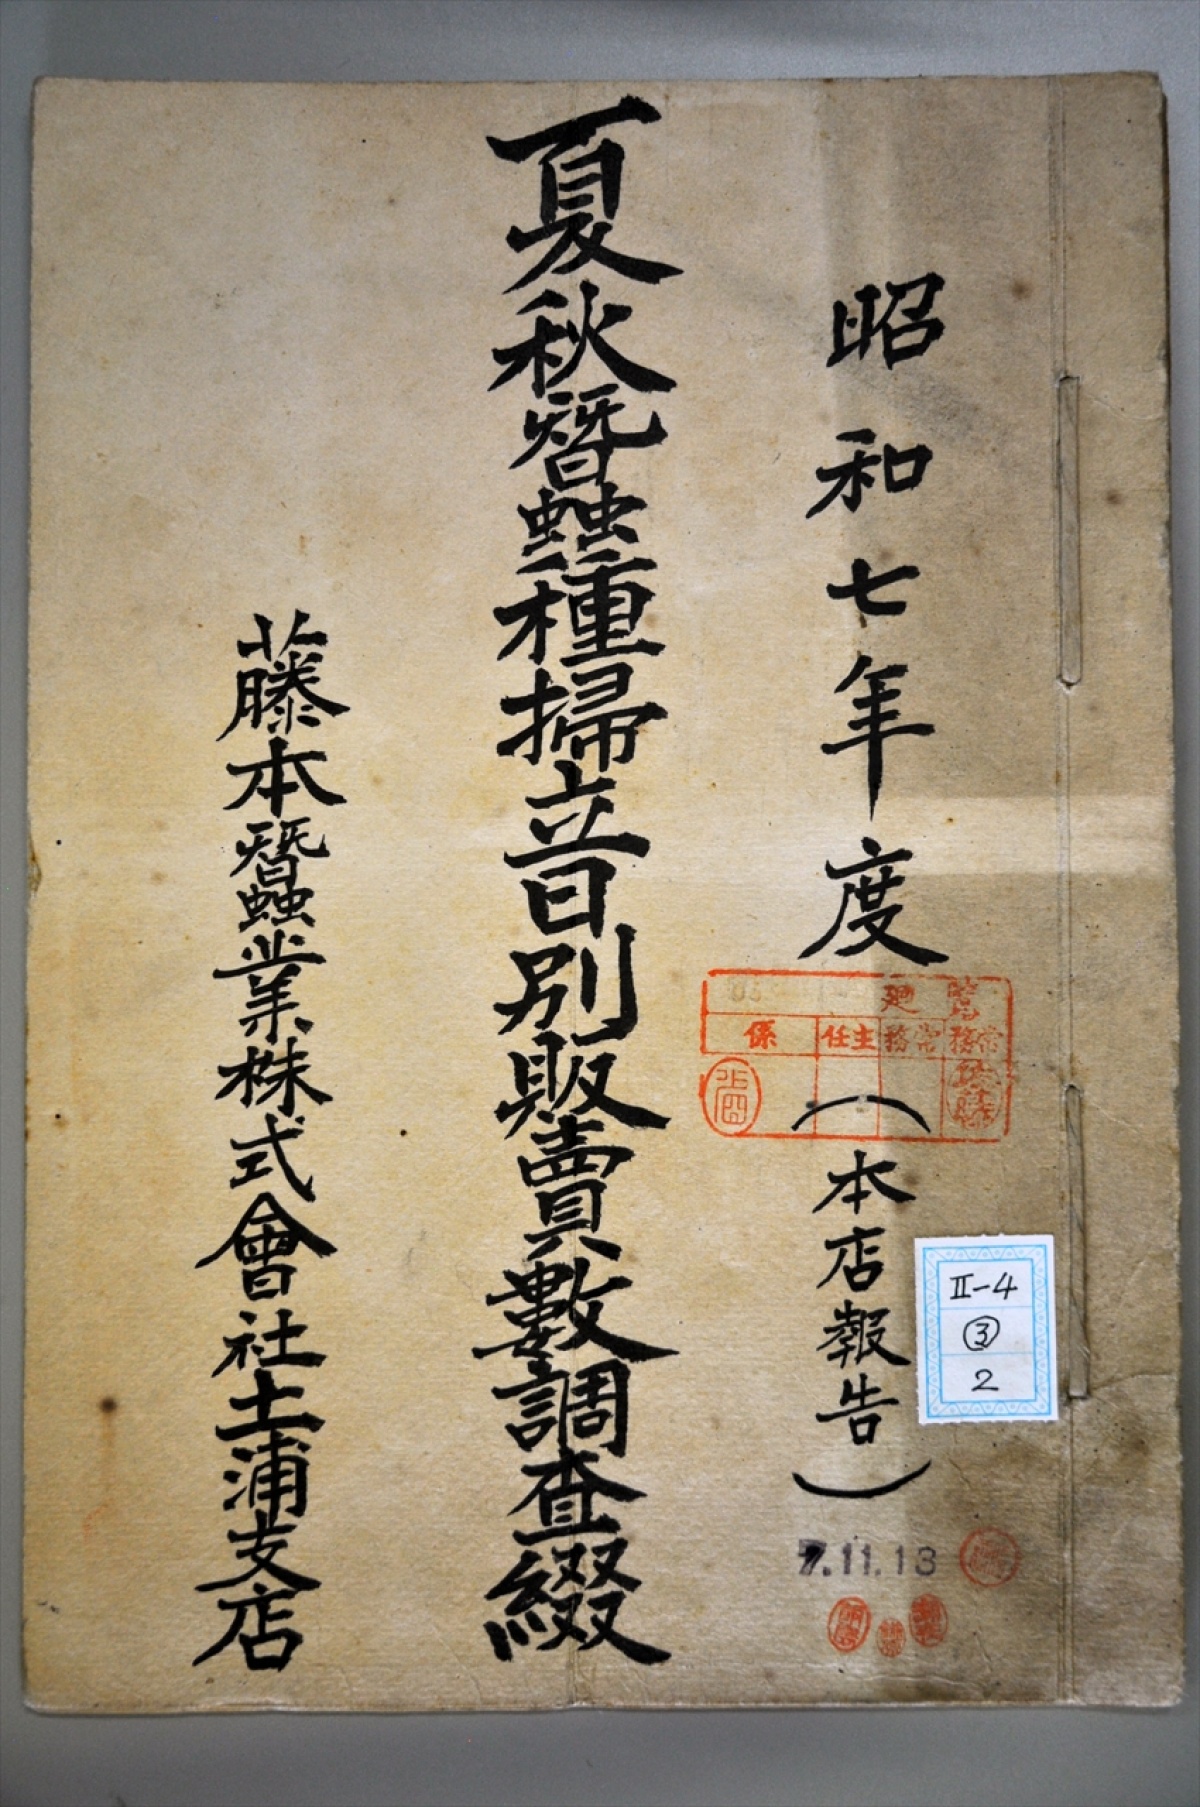 昭和七年度
(本店報告)
夏秋蚕種掃立日別販賣數調査綴
藤本蚕業株式會社土浦支店
廻覽
常務
常務
主任
係
7.11.13
Ⅱ-4
③
2